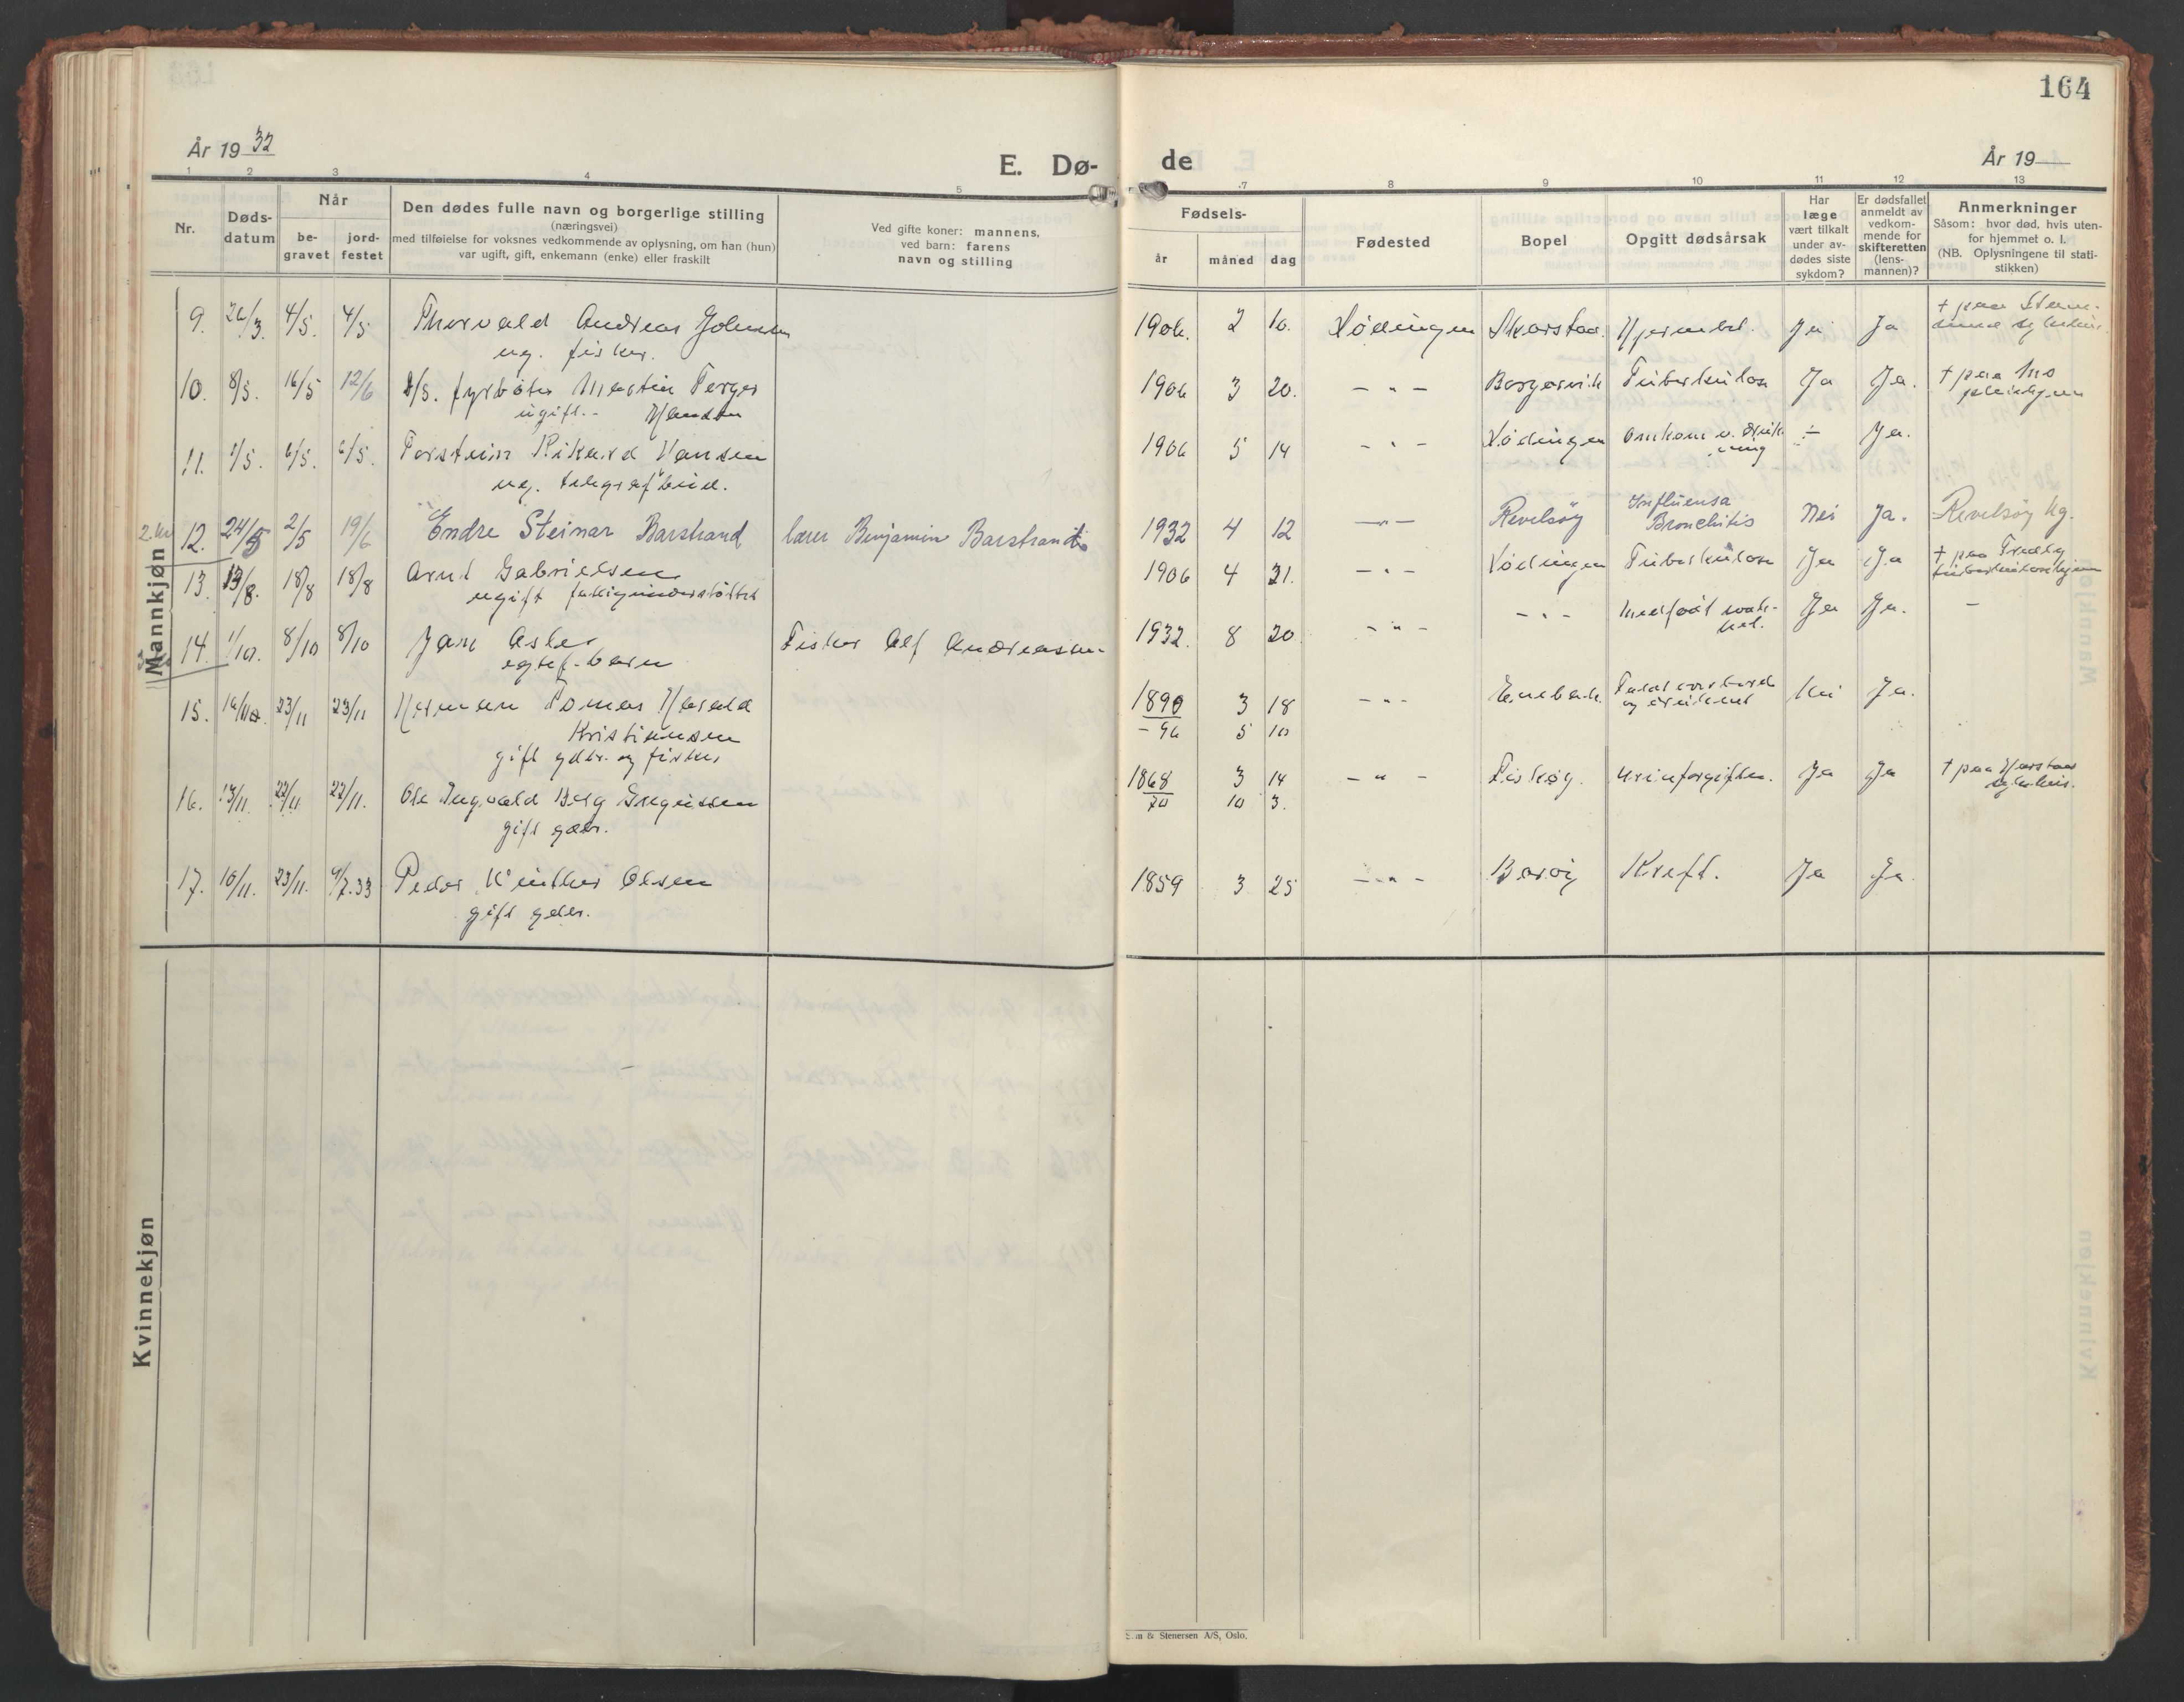 164
År 19 32
E. Dø-
de
År 19
1 2 3 4 5
7 8 9 10 11 12 13
Nr.
Døds-
datum
Når
be-
gravet
jord-
festet
Den dødes fulle navn og borgerlige stilling
(næringsvei)
med tilføielse for voksnes vedkommende av oplysning, om han (hun)
var ugift, gift, enkemann (enke) eller fraskilt
Ved gifte koner: mannens,
ved barn: farens
navn og stilling
Fødsels-
år
måned
dag
Fødested
Bopel
Opgitt dødsårsak
Har
læge
vært tilkalt
under av-
dødes siste
sykdom?
Er dødsfallet
anmeldt av
vedkom-
mende for
skifteretten
(lens-
mannen)?
Anmerkninger
Såsom: hvor død, hvis uten-
for hjemmet o. l.
(NB. Oplysningene til stati-
stikken)
Mannkjøn
9. 26/3. 4/5. 4/5 Thorvald Andreas Johnsen 1906. 2 10. Lødingen Skarstad. Hjernebet. Ja Ja
ug. fisker.
10. 8/5. 16/5 12/6 fyrbøter Martin Torger 1906 3 20. - " - Borgarvik Tuberkulose Ja Ja. + paa Mo
ugift. - Hansen pleiehjem
11. 1/5. 6/5. 6/5. Torstein Rikard Hansen 1906 5 14 - " - Lødingen Omkom v. druk- ÷ Ja.
ug. telegrafbeid. ning
12. 24/5 2/5 19/6 Endre Steinar Barstrand lærer Benjamin Barstrand 1932 4 12 - " - Revelsøy Influensa Bronchitis Nei Ja. Revelsøy kg.
13. 13/8. 18/8 18/8 Arnt Gabrielsen 1906 4 21. - " - Lødingen Tuberkulose Ja Ja + paa
ugift fattigunderstøttet tuberkulosehjem
14. 1/10. 8/10 8/10 Jan Asle Fisker Alf Andreassen 1932. 8 20 - " - - " - Medfødt svak- Ja Ja. -
egtef. barn het.
15. 16/10 23/11 23/11 Herman Tomas Harald 1890 3 18 - " - Falt overbord Nei Ja.
Kristiansen - 96 5 10 og druknet
gift gdbr. og fisker
16. 13/11. 22/11 22/11. Ole Ingvald Berg Gregussen 1868 3 14 - " - Fiskøy. Urinforgiften. Ja Ja + paa Harstad
gift gdbr. 70 10 3. sykehus.
17. 10/11. 23/11. 9/7.33 Peder Winther Olsen 1859 3 25 - " - Barøy Kreft. Ja Ja
gift gdbr.
Kvinnekjøn
& Stenersen A/S, Oslo.